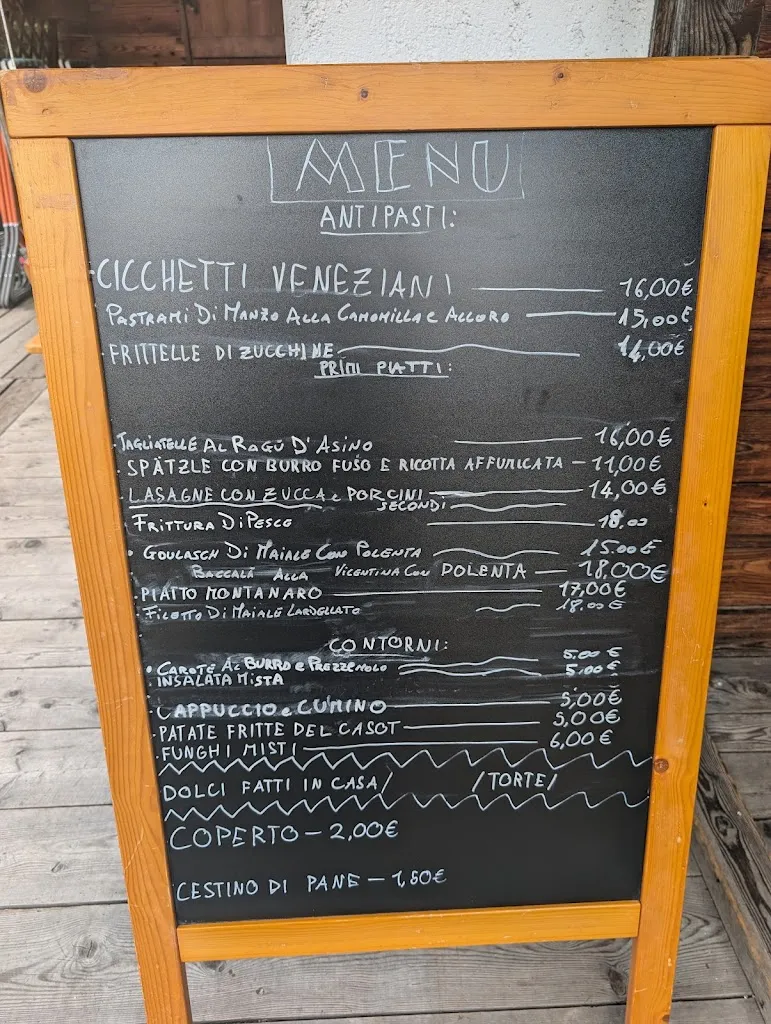 MENU
ANTIPASTI:
CICCHETTI VENEZIANI 16,00€
PASTRAMI DI MANZO ALLA CAMOMILLA E ALLORO 15,00€
FRITTELLE DI ZUCCHINE 14,00€
PRIMI PIATTI:
TAGLIATELLE AL RAGÙ D'ASINO 16,00€
SPÄTZLE CON BURRO FUSO E RICOTTA AFFUMICATA - 11,00€
LASAGNE CON ZUCCA e PORCINI 14,00€
SECONDI
FRITTURA DI PESCE 18,00
GOULASCH DI MAIALE CON POLENTA 15.00€
BACCALÀ ALLA VICENTINA CON POLENTA - 18,00€
PIATTO MONTANARO 17,00€
FILETTO DI MAIALE LARDELLATO 18.00€
CONTORNI:
CAROTE AL BURRO e PREZZEMOLO 5.00€
INSALATA MISTA 5,00€
CAPPUCCIO e CUMINO 5,00€
PATATE FRITTE DEL CASOT 5,00€
FUNGHI MISTI 6,00€
DOLCI FATTI IN CASA/ /TORTE/
COPERTO - 2,00€
CESTINO DI PANE - 1,50€